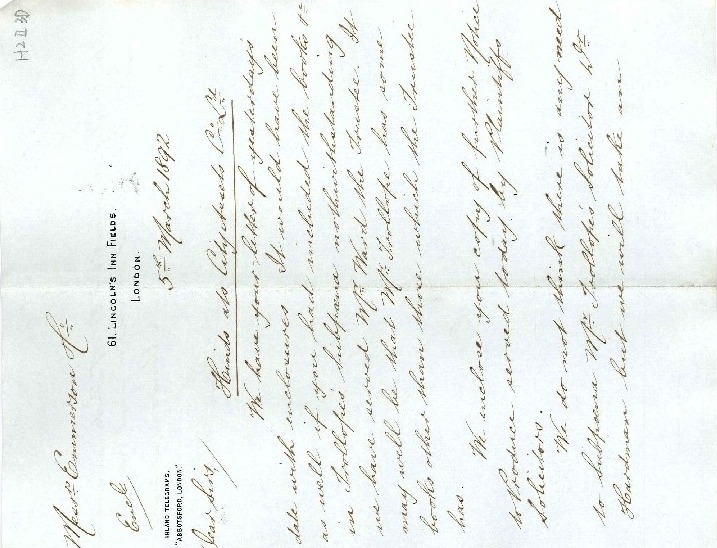 H2 II 3D
61, LINCOLN'S INN FIELDS.
LONDON.
INLAND TELEGRAMS,
"ABBOTSFORD, LONDON."
5th March 1892
Messrs Emmerson & Co
Encl
Dear Sirs,
Hinds ats City &
We have your letter of yesterdays
date with enclosures It would have been
as well if you had included the books &c
in Trollopes subpœna notwithstanding
we have served Mr Ward the Trustee. It
may well be that Mr Trollope has some
books other than those which the Trustee
has.
We enclose you copy of further Notice
to Produce served today by Plaintiffs
Solicitors.
We do not think there is any need
to subpœna Mr Trollopes Solicitor Mr
Hardman but we will take an